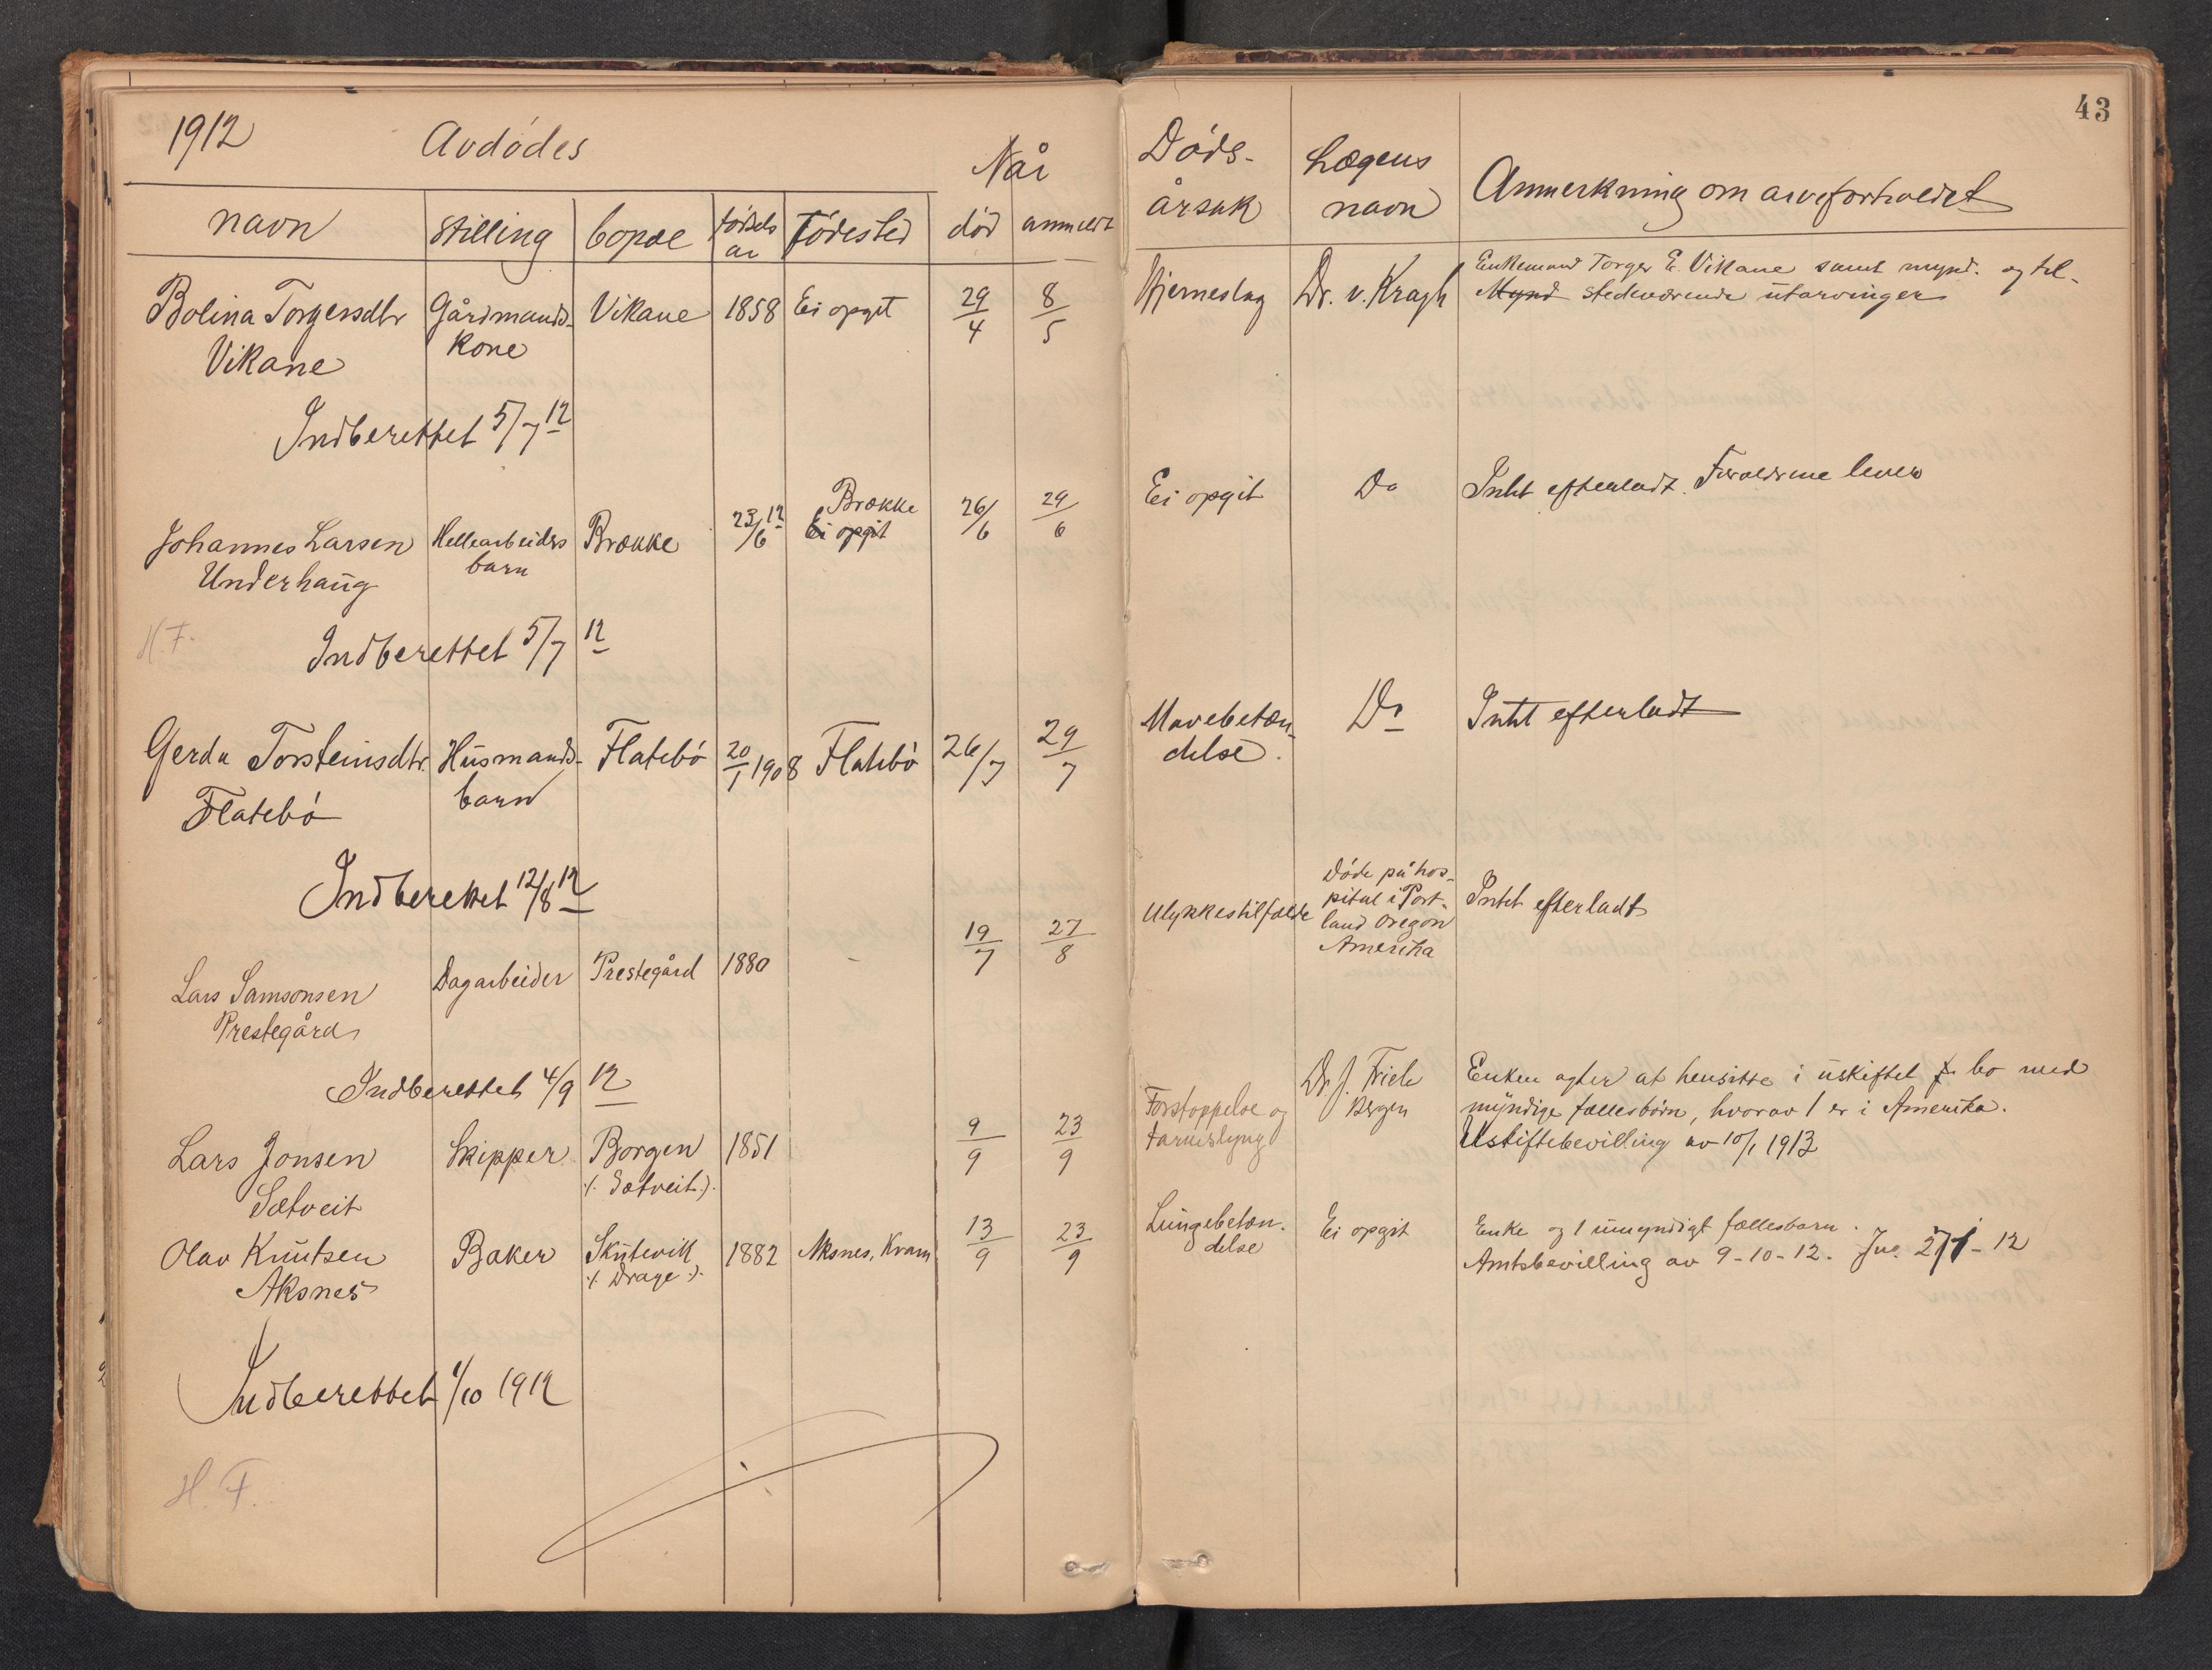 43
1912 Avdødes Når Døds- årsak Lægens navn Anmerkning om arveforholdet
navn stilling bopæl fødsels år Fødested død anmeldt
Bolina Torgersdtr Gårdmands- Vikane 1858 Ei opgit 29/4 8/5 Hjerneslag Dr. v. Kragh Enkemand Torger E. Vikane samt mynd. og til-
Vikane kone Mynd stedeværende utarvinger
Indberettet 5/7 12
Johannes Larsen Hellearbeiders Brække 23/6 12 Brække Ei opgit 26/6 29/6 Ei opgit Do Intet efterladt. Forældrene lever
Underhaug barn
H. F.
Indberettet 5/7 12
Gerda Torsteinsdtr. Husmands- Flatebø 20/1 1908 Flatebø 26/7 29/7 Mavebetæn- Do Intet efterladt
Flatebø barn delse.
Indberettet 12/8 12
Lars Samsonsen Dagarbeider Prestegård 1880 - 19/7 27/8 Ulykkestilfælde Døde på hos- Intet efterladt
Prestegård pital i Port-
land Oregon
Amerika
Indberettet 4/9 12
Lars Jonsen Skipper Borgen 1851 9/9 23/9 Forstoppelse og Dr. J. Friele Enken agter at hensitte i uskiftet bo med
Sætveit /. Sætveit ./. tarmslyng Bergen myndige fællesbørn, hvorav 1 er i Amerika.
Uskiftebevilling av 10/1 1913
Olav Knutsen Baker Skutevik 1882 Aksnes, Kvam 13/9 23/9 Lungebetæn- Ei opgit Enke og 1 umyndigt fællesbarn.
Aksnes /. Drage ./. delse Amtsbevilling av 9-10-12. Jno. 271-12
Indberettet 1/10 1912
H. F.